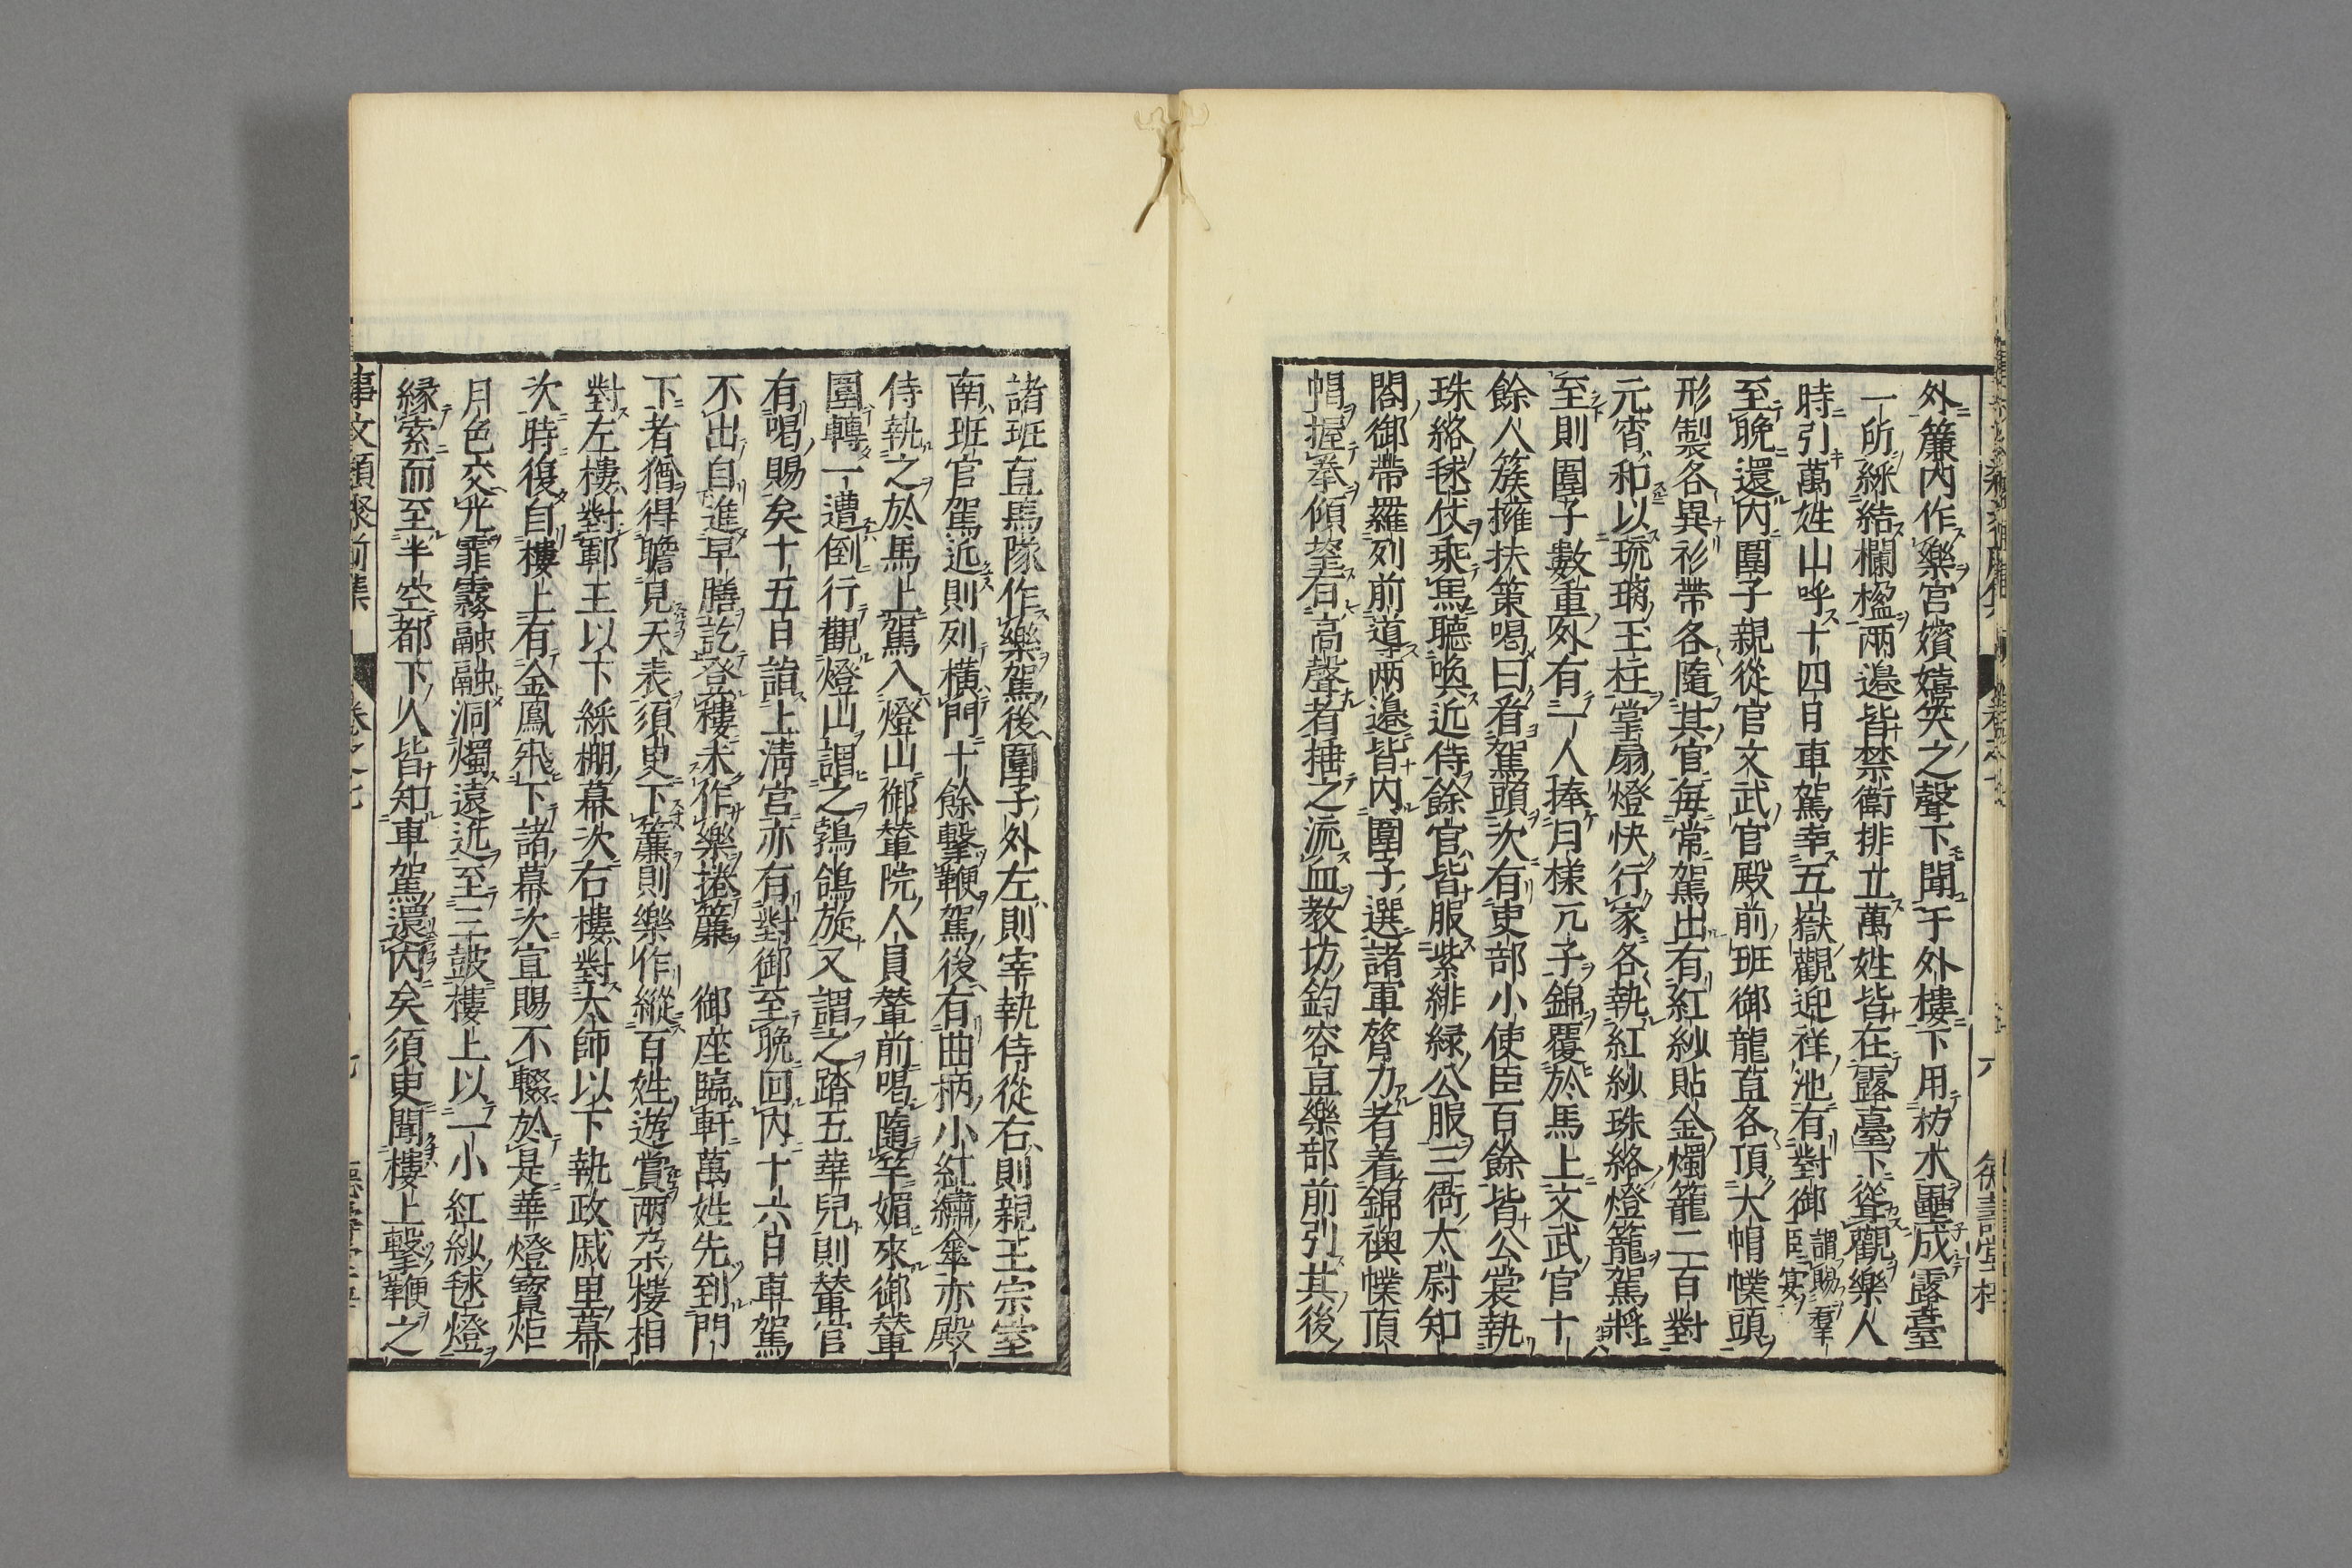 外簾內作樂宮嬪嬉笑之聲下聞于外樓下用枋木壘成露臺
一所綵結欄檻兩邊皆禁衛排立萬姓皆在露臺下從觀樂人
時引萬姓山呼十四日車駕幸五嶽觀迎祥池有對御謂賜羣臣宴
至晚還內圍子親從官文武官殿前班御龍直各頂大帽幞頭
形製各異衫帶各隨其官每常駕出有紅紗貼金燭籠二百對
元宵和以琉璃玉柱掌扇燈快行家各執紅紗珠絡燈籠駕將
至則圍子數重外有一人捧月樣兀子錦覆於馬上文武官十
餘人簇擁扶策喝曰看駕頭次有吏部小使臣百餘皆公裳執
珠絡毬仗乘馬聽喚近侍餘官皆服紫緋緑公服三衙太尉知
閤御帶羅列前導兩邊皆內圍子選諸軍膂力者着錦襖幞頂
帽握拳傾望右高聲者捶之流血教坊鈞容直樂部前引其後
諸班直馬隊作樂駕後圍子外左則宰執侍從右則親王宗室
南班官駕近則列橫門十餘擊鞭駕後有曲柄小紅繡傘亦殿
侍執之於馬上駕入燈山御輦院人員輦前喝隨竿媚來御輦
團轉一遭倒行觀燈山謂之鵓鴿旋又謂之踏五華兒則輦官
有喝賜矣十五日詣上淸宮亦有對御至晚回內十六日車駕
不出自進早膳訖登樓未作樂捲簾　御座臨軒萬姓先到門
下者猶得瞻見天表須臾下簾則樂作縱百姓遊賞兩朶樓相
對左樓對鄆王以下綵棚幕次右樓對太師以下執政戚里幕
次時復自樓上有金鳳飛下諸幕次宣賜不輟於是華燈寳炬
月色交光霏霧融融洞燭遠近至三皷樓上以一小紅紗毬燈
緣索而至半空都下人皆知車駕還內矣須臾聞樓上擊鞭之
事文類聚前集　卷之七